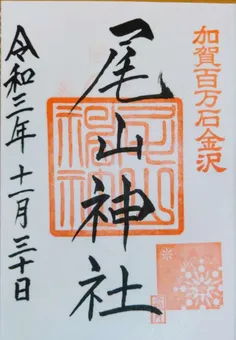 加賀百万石金沢
尾山神社
令和三年十一月三十日
尾山
神社